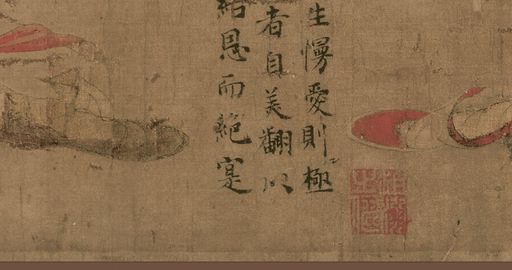 生慢愛則極
者自美翩以
結恩而絶寔